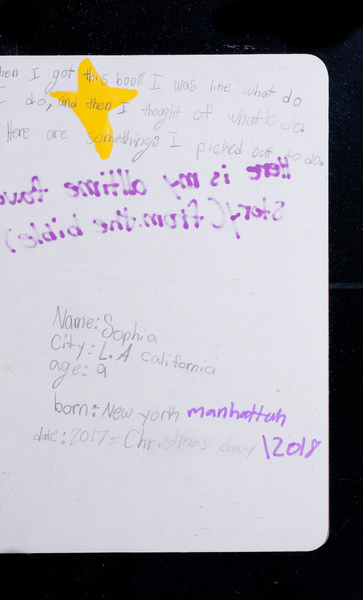 hen I got this book I was like what do
I do, and then I thought of what to do.
Here are somethings I picked out to do.
Here is my alltime favo
Story (from the bible)
Name: Sophia
City: L.A california
age: 9
born: New york manhattan
date: 2017= Christmas day \2018